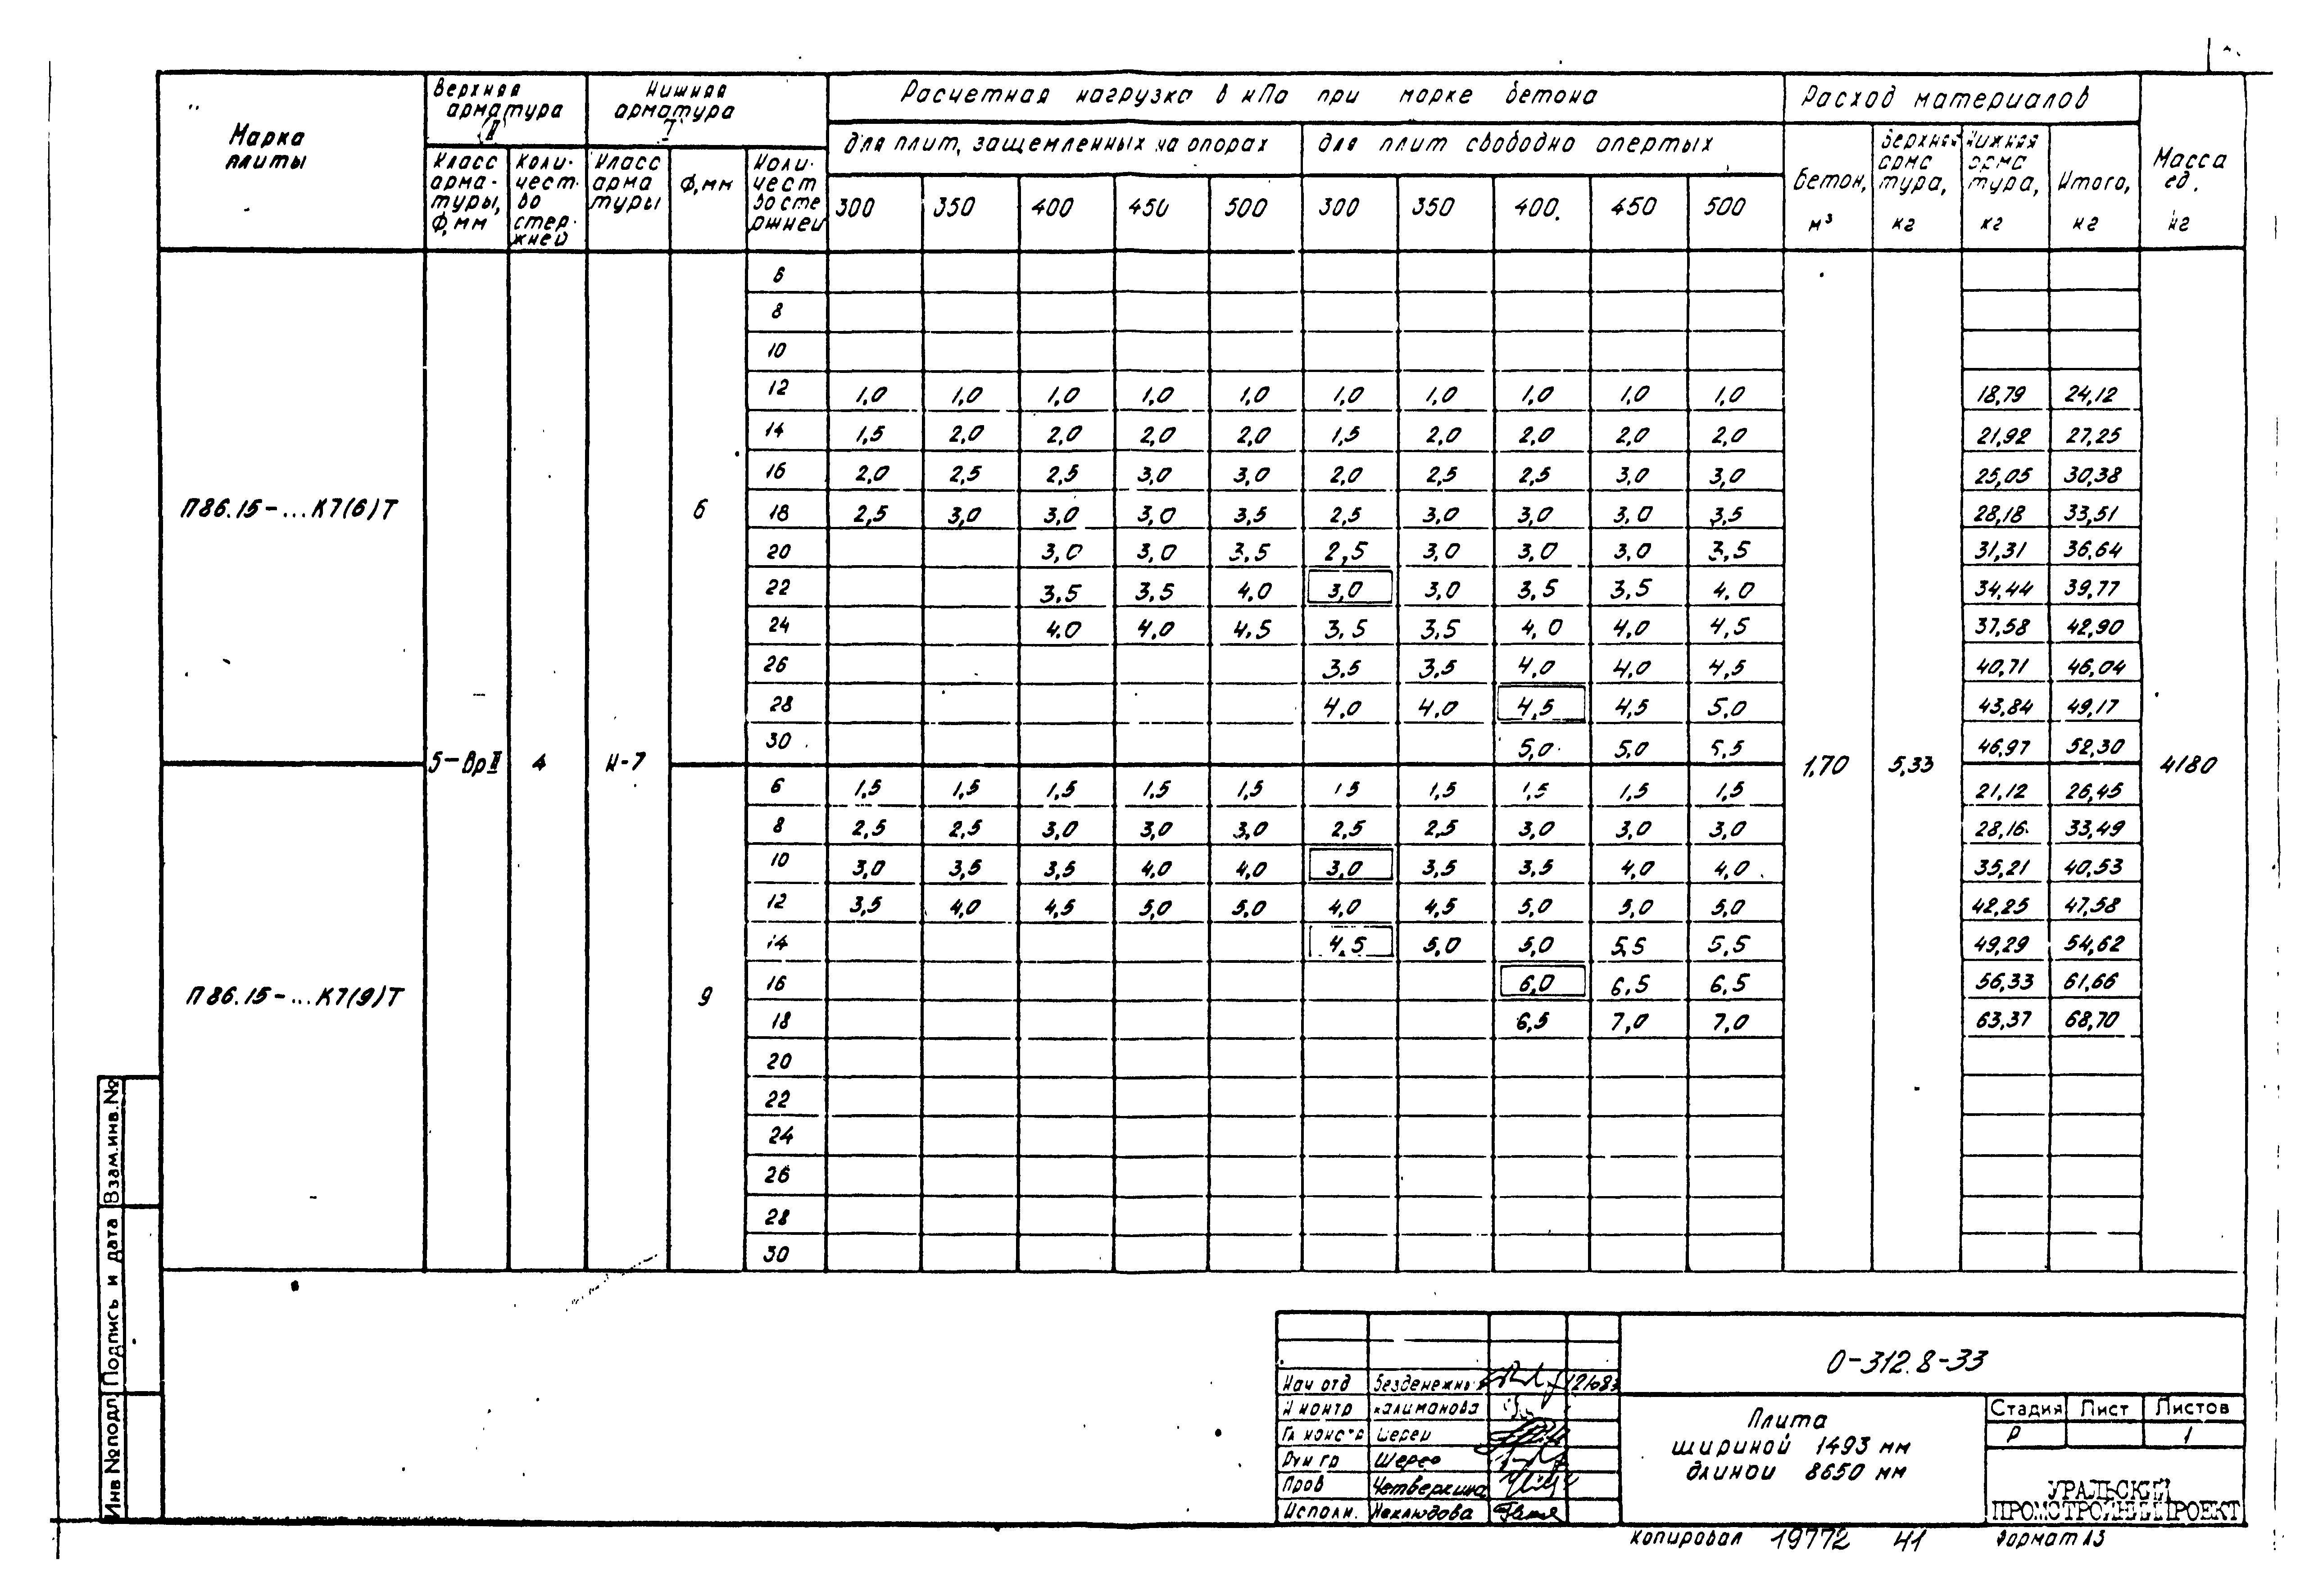 Марка плиты
Верхняя арматура (II)
Нижняя арматура I
Расчетная нагрузка в кПа при марке бетона
Расход материалов
Масса ед. кг
Класс арматуры, Ф, мм
Количество стержней
Класс арматуры
Ф, мм
Количество стержней
для плит, защемленных на опорах
для плит свободно опертых
Бетон, м³
Верхняя арматура, кг
Нижняя арматура, кг
Итого, кг
300 350 400 450 500 300 350 400 450 500
П86.15-...К7(6)Т
5-ВрII 4 К-7 6
1,70 5,33 4180
6
8
10
12 1,0 1,0 1,0 1,0 1,0 1,0 1,0 1,0 1,0 1,0 18,79 24,12
14 1,5 2,0 2,0 2,0 2,0 1,5 2,0 2,0 2,0 2,0 21,92 27,25
16 2,0 2,5 2,5 3,0 3,0 2,0 2,5 2,5 3,0 3,0 25,05 30,38
18 2,5 3,0 3,0 3,0 3,5 2,5 3,0 3,0 3,0 3,5 28,18 33,51
20 3,0 3,0 3,5 2,5 3,0 3,0 3,0 3,5 31,31 36,64
22 3,5 3,5 4,0 3,0 3,0 3,5 3,5 4,0 34,44 39,77
24 4,0 4,0 4,5 3,5 3,5 4,0 4,0 4,5 37,58 42,90
26 3,5 3,5 4,0 4,0 4,5 40,71 46,04
28 4,0 4,0 4,5 4,5 5,0 43,84 49,17
30 5,0 5,0 5,5 46,97 52,30
П86.15-...К7(9)Т
9
6 1,5 1,5 1,5 1,5 1,5 1 5 1,5 1,5 1,5 1,5 21,12 26,45
8 2,5 2,5 3,0 3,0 3,0 2,5 2,5 3,0 3,0 3,0 28,16 33,49
10 3,0 3,5 3,5 4,0 4,0 3,0 3,5 3,5 4,0 4,0 35,21 40,53
12 3,5 4,0 4,5 5,0 5,0 4,0 4,5 5,0 5,0 5,0 42,25 47,58
14 4,5 5,0 5,0 5,5 5,5 49,29 54,62
16 6,0 6,5 6,5 56,33 61,66
18 6,5 7,0 7,0 63,37 68,70
20
22
24
26
28
30
Взам.инв.№
Подпись и дата
Инв №подл
Нач отд Безденежн
Н контр Калиманова
Гл констр Шерец
Рук гр
Пров Четверкина
Исполн. Неклюдова
0-312.8-33
Плита
шириной 1493 мм
длиной 8650 мм
Стадия Лист Листов
Р 1
УРАЛЬСКИЙ
ПРОМСТРОЙНИИПРОЕКТ
Копировал 19772 41 Формат А3